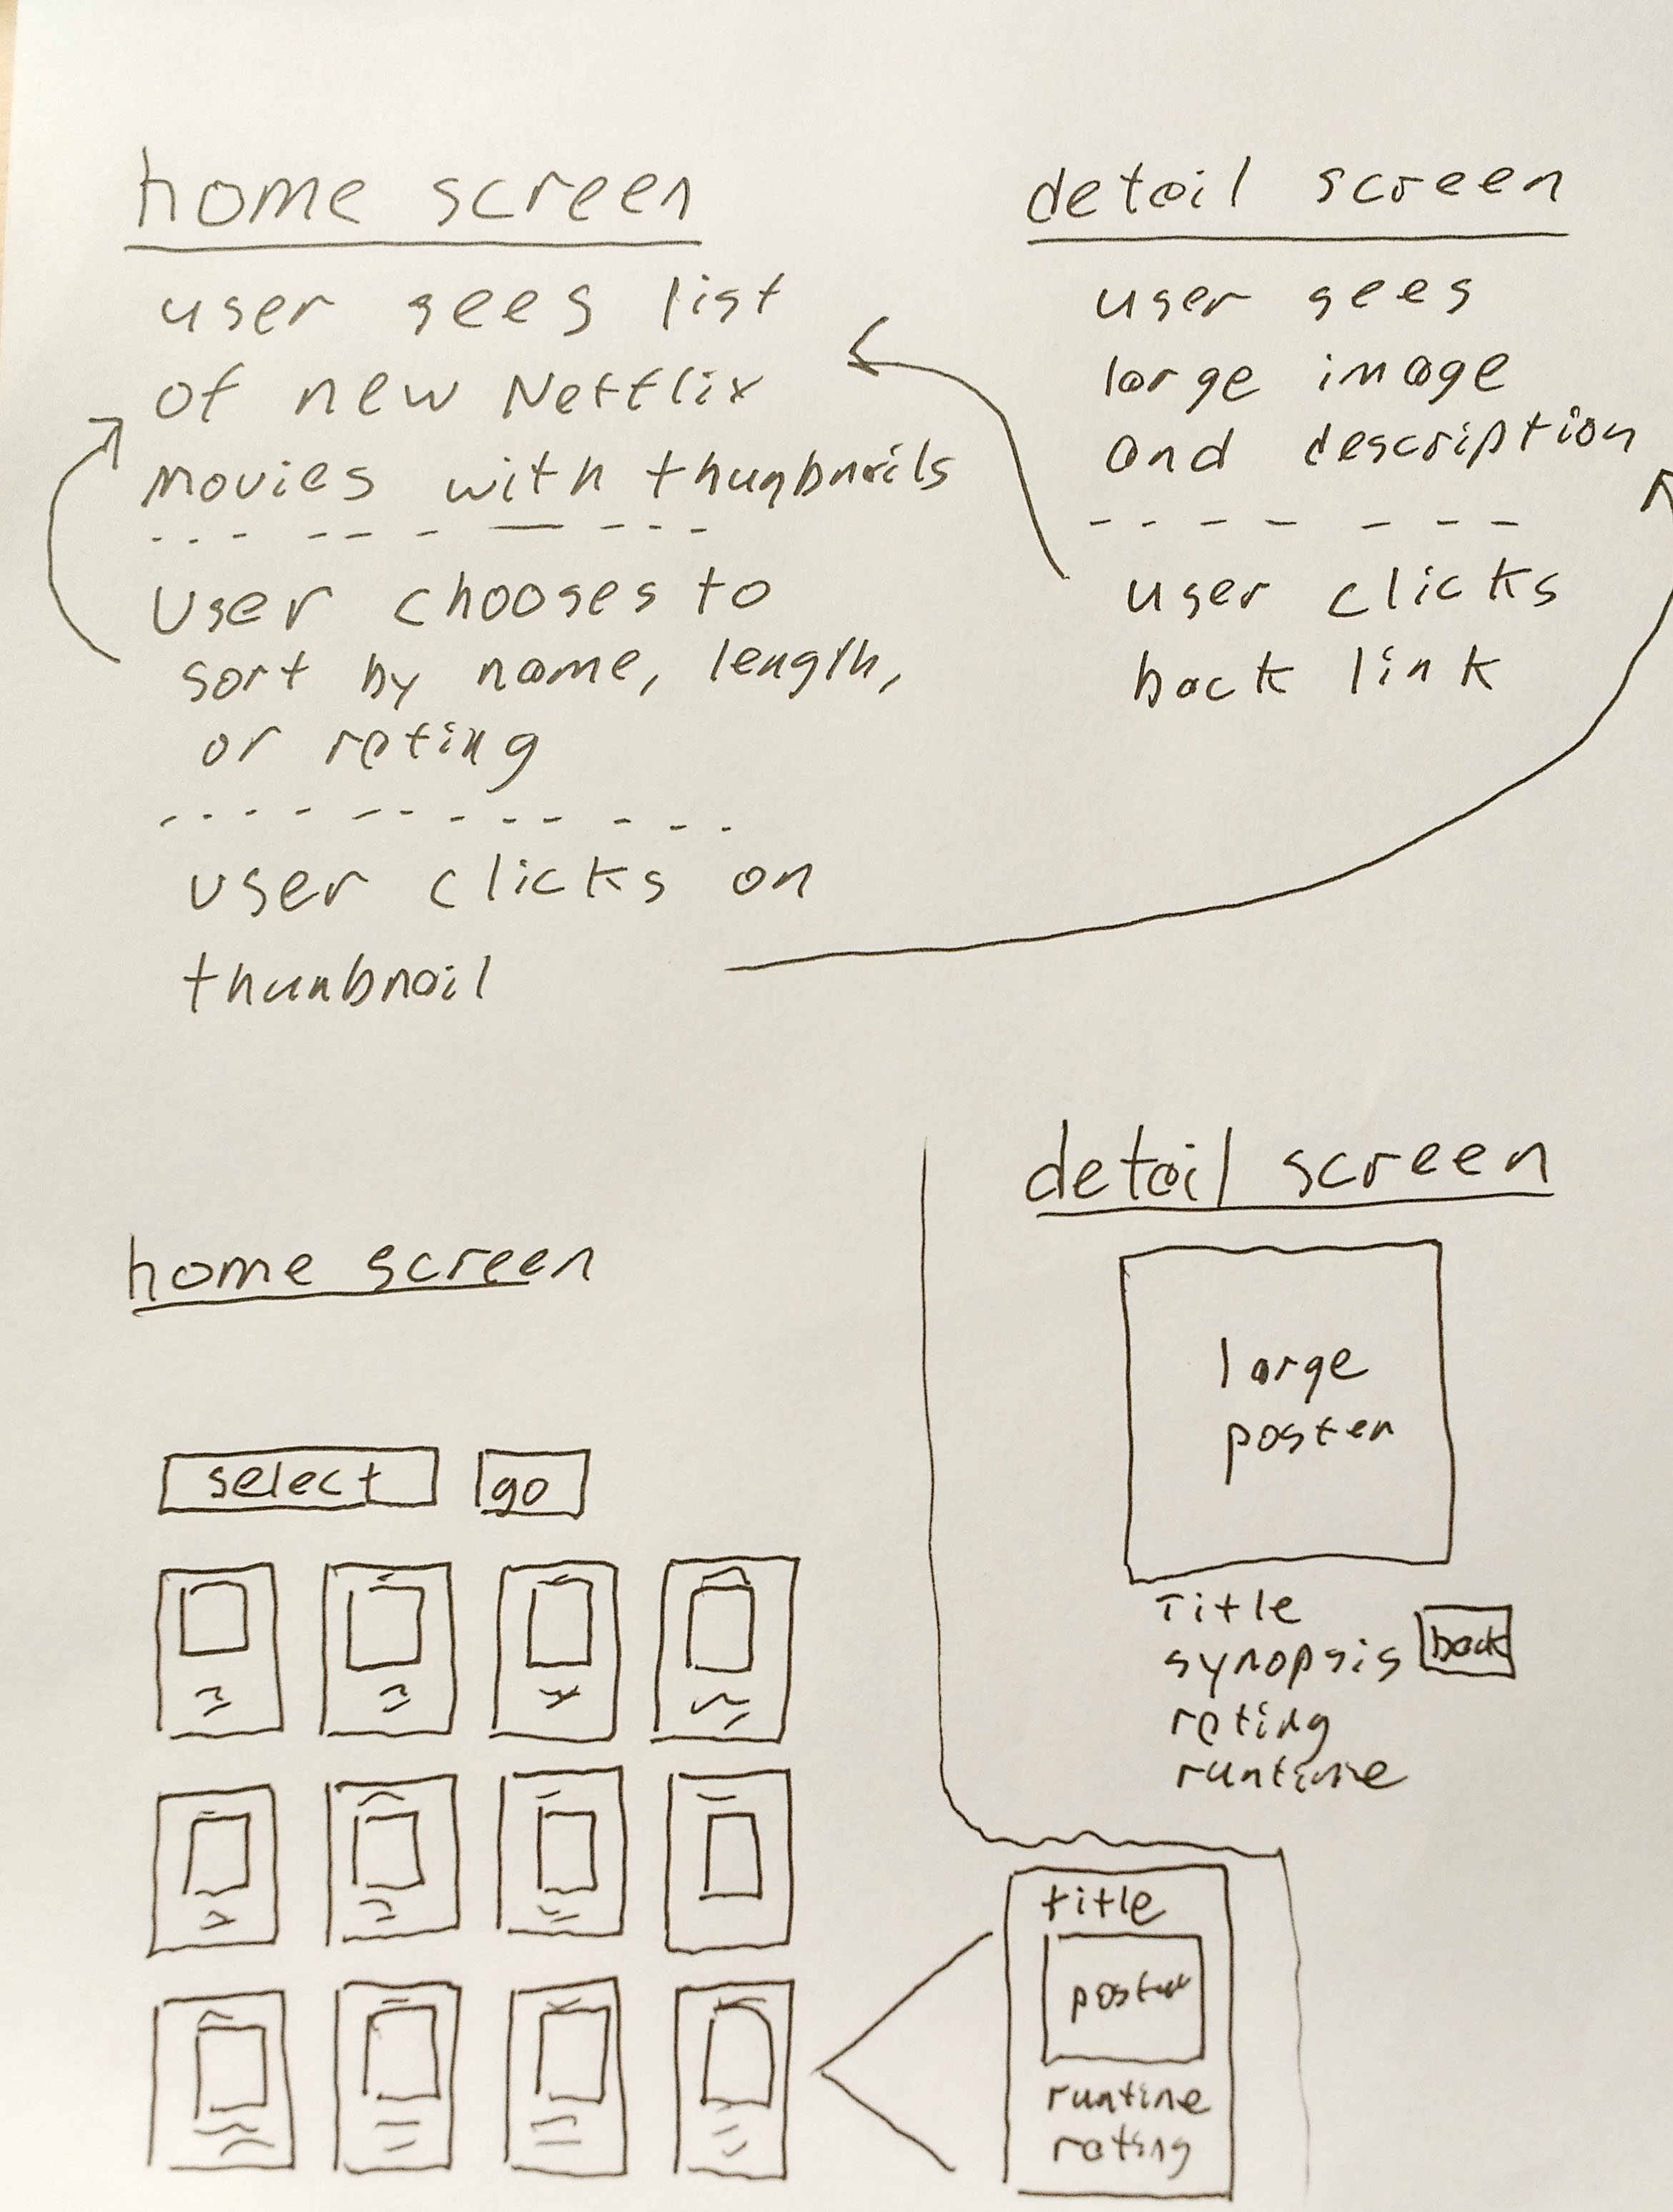 home screen
user sees list
of new Netflix
movies with thumbnails
User chooses to
sort by name, length,
or rating
user clicks on
thumbnail
detail screen
user sees
large image
and description
user clicks
back link
home screen
select
go
detail screen
large
poster
Title
synopsis
back
rating
runtime
title
poster
runtime
rating